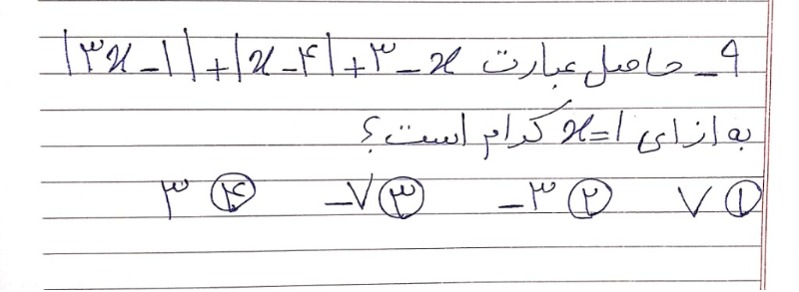 ۹_ حاصل عبارت |۳x-۱|+|x-۴|+۳-x
به ازای x=۱ کدام است؟
① ۷ ② -۳ ③ -۷ ④ ۳